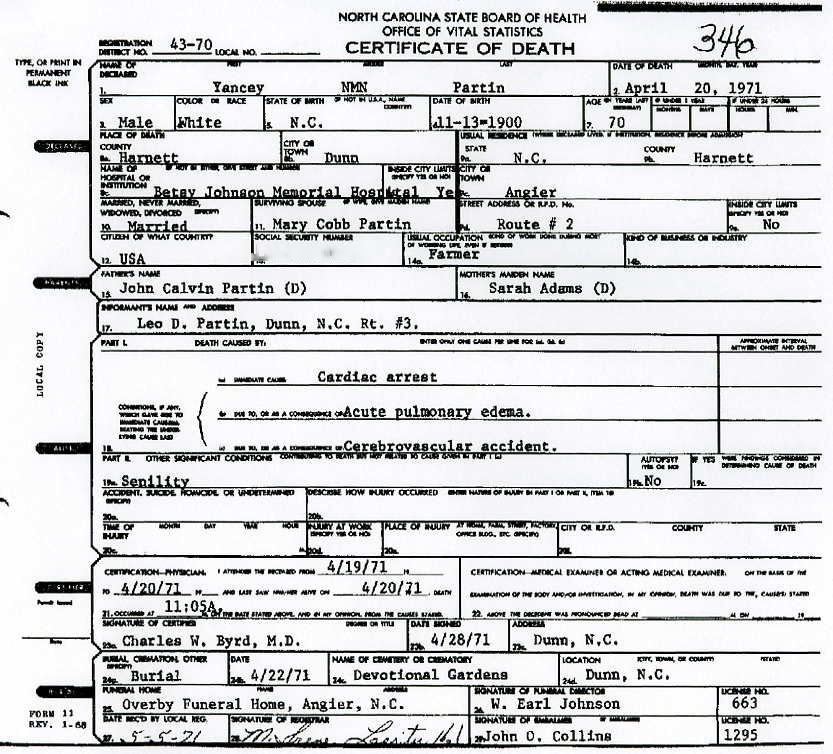 NORTH CAROLINA STATE BOARD OF HEALTH
OFFICE OF VITAL STATISTICS
CERTIFICATE OF DEATH
346
REGISTRATION DISTRICT NO. 43-70 LOCAL NO.
TYPE, OR PRINT IN PERMANENT BLACK INK
NAME OF DECEASED FIRST MIDDLE LAST DATE OF DEATH (MONTH, DAY, YEAR)
1. Yancey NMN Partin 2. April 20, 1971
SEX COLOR OR RACE STATE OF BIRTH (IF NOT IN U.S.A., NAME COUNTRY) DATE OF BIRTH AGE (IN YEARS LAST BIRTHDAY) IF UNDER 1 YEAR IF UNDER 24 HOURS
MONTHS DAYS HOURS MIN.
3. Male White 5. N.C. 11-13=1900 7. 70
PLACE OF DEATH USUAL RESIDENCE (WHERE DECEASED LIVED. IF INSTITUTION, RESIDENCE BEFORE ADMISSION)
COUNTY CITY OR TOWN STATE COUNTY
8a. Harnett 8b. Dunn 9a. N.C. 9b. Harnett
NAME OF HOSPITAL OR INSTITUTION (IF NOT IN EITHER, GIVE STREET AND NUMBER) INSIDE CITY LIMITS (SPECIFY YES OR NO) CITY OR TOWN
8c. Betsy Johnson Memorial Hospital Yes 9c. Angier
MARRIED, NEVER MARRIED, WIDOWED, DIVORCED (SPECIFY) SURVIVING SPOUSE (IF WIFE, GIVE MAIDEN NAME) STREET ADDRESS OR R.F.D. No. INSIDE CITY LIMITS (SPECIFY YES OR NO)
10. Married 11. Mary Cobb Partin 9d. Route # 2 9e. No
CITIZEN OF WHAT COUNTRY? SOCIAL SECURITY NUMBER USUAL OCCUPATION (KIND OF WORK DONE DURING MOST OF WORKING LIFE, EVEN IF RETIRED) KIND OF BUSINESS OR INDUSTRY
12. USA 13. 14a. Farmer 14b.
FATHER'S NAME MOTHER'S MAIDEN NAME
15. John Calvin Partin (D) 16. Sarah Adams (D)
INFORMANT'S NAME AND ADDRESS
17. Leo D. Partin, Dunn, N.C. Rt. #3.
LOCAL COPY
PART I. DEATH CAUSED BY: ENTER ONLY ONE CAUSE PER LINE FOR (a), (b), (c) APPROXIMATE INTERVAL BETWEEN ONSET AND DEATH
(a) IMMEDIATE CAUSE Cardiac arrest
CONDITIONS, IF ANY, WHICH GAVE RISE TO IMMEDIATE CAUSE(a), STATING THE UNDERLYING CAUSE LAST
(b) DUE TO, OR AS A CONSEQUENCE OF Acute pulmonary edema.
18. (c) DUE TO, OR AS A CONSEQUENCE OF Cerebrovascular accident.
PART II. OTHER SIGNIFICANT CONDITIONS CONTRIBUTING TO DEATH BUT NOT RELATED TO CAUSE GIVEN IN PART I (a) AUTOPSY? (YES OR NO) IF YES WERE FINDINGS CONSIDERED IN DETERMINING CAUSE OF DEATH
19a. Senility 19b. No 19c.
ACCIDENT, SUICIDE, HOMICIDE, OR UNDETERMINED (SPECIFY) DESCRIBE HOW INJURY OCCURRED (ENTER NATURE OF INJURY IN PART I OR PART II, ITEM 18)
20a. 20b.
TIME OF INJURY MONTH DAY YEAR HOUR INJURY AT WORK (SPECIFY YES OR NO) PLACE OF INJURY AT HOME, FARM, STREET, FACTORY, OFFICE BLDG., ETC. (SPECIFY) CITY OR R.F.D. COUNTY STATE
20c. M. 20d. 20e. 20f.
CERTIFICATION—PHYSICIAN. I ATTENDED THE DECEASED FROM 4/19/71 19
TO 4/20/71 19 AND LAST SAW HIM/HER ALIVE ON 4/20/71. DEATH
21. OCCURRED AT 11:05A. M. ON THE DATE STATED ABOVE, AND IN MY OPINION, FROM THE CAUSES STATED.
CERTIFICATION—MEDICAL EXAMINER OR ACTING MEDICAL EXAMINER. ON THE BASIS OF THE
EXAMINATION OF THE BODY AND/OR INVESTIGATION, IN MY OPINION, DEATH WAS DUE TO THE CAUSE(S) STATED
22. ABOVE THE DECEDENT WAS PRONOUNCED DEAD AT M. ON 19
Permit Issued
Date
SIGNATURE OF CERTIFIER DEGREE OR TITLE DATE SIGNED ADDRESS
23a. Charles W. Byrd, M.D. 23b. 4/28/71 23c. Dunn, N.C.
BURIAL, CREMATION, OTHER (SPECIFY) DATE NAME OF CEMETERY OR CREMATORY LOCATION (CITY, TOWN, OR COUNTY) (STATE)
24a. Burial 24b. 4/22/71 24c. Devotional Gardens 24d. Dunn, N.C.
FUNERAL HOME NAME ADDRESS SIGNATURE OF FUNERAL DIRECTOR LICENSE NO.
25. Overby Funeral Home, Angier, N.C. 26. W. Earl Johnson 663
FORM 11
REV. 1-68
DATE REC'D BY LOCAL REG. SIGNATURE OF REGISTRAR SIGNATURE OF EMBALMER IF EMBALMED LICENSE NO.
27. 5-5-71 28. M. Irene 29. John O. Collins 1295